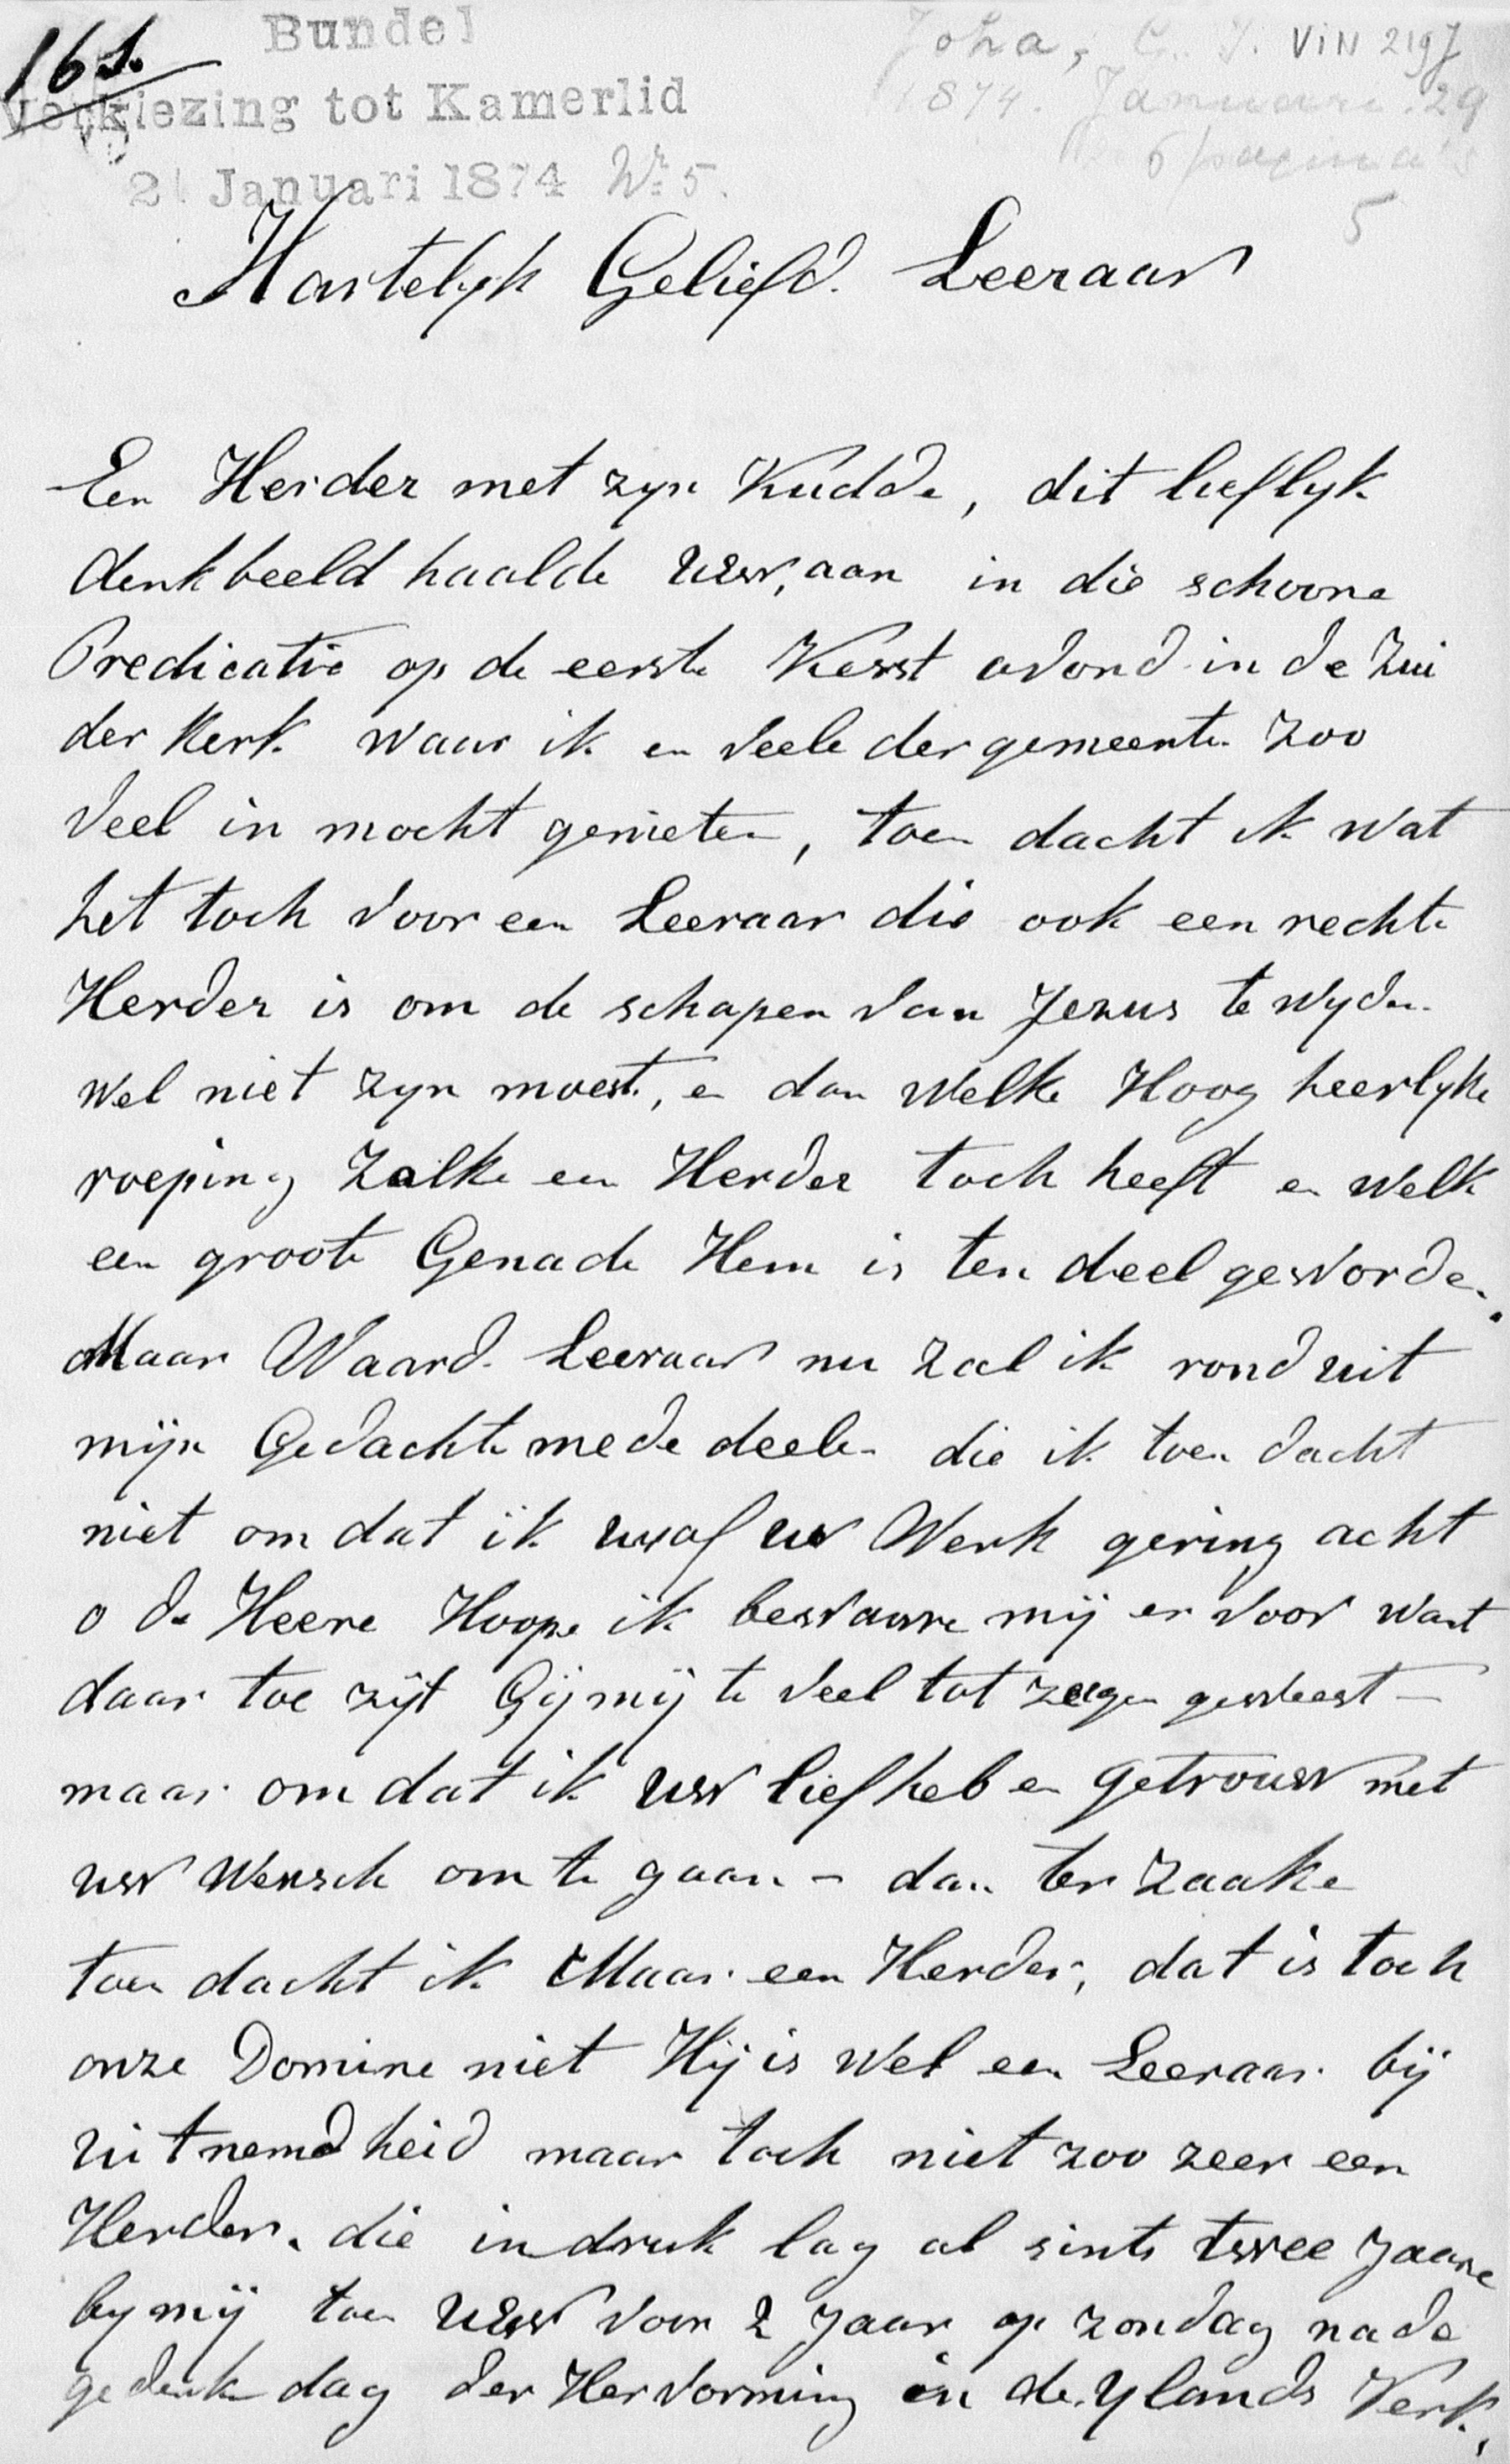 168.
Bundel
Verkiezing tot Kamerlid
21 Januari 1874 Nr 5.
Joha, C. J. VIN 2197
1874. Januari. 29
6 pagina's
5
Hartelyk Geliefd. Leeraar
Een Herder met zyn Kudde, dit lieflyk
denkbeeld haalde UEw, aan in die schoone
Predicatie op de eerste Kerst avond in de Zui
der Kerk waar ik en veele der gemeente zoo
veel in mocht genieten, toen dacht ik wat
het toch voor een Leeraar die ook een rechte
Herder is om de schapen van Jezus te wyden
wel niet zyn moest, en dan welke Hoog heerlyke
roeping zulke een Herder toch heeft en welk
een groote Genade Hem is ten deel geworden.
Maar Waard. Leeraar nu zal ik rond uit
mijn Gedachte mede deelen die ik toen dacht
niet om dat ik uw of uw Werk gering acht
o de Heere Hoope ik bewaare mij er voor want
daar toe zijt Gij mij te veel tot zegen geweest –
maar om dat ik uw lief heb en getrouw met
uw wensch om te gaan – dan ter zaake
toen dacht ik Maar een Herder, dat is toch
onze Domine niet Hij is wel een Leeraar bij
uitnemdheid maar toch niet zoo zeer een
Herder. die indruk lag al sints twee Jaare
by mij toen UEw voor 2 Jaar op zondag na de
gedenk dag der Hervorming in de Ylands Kerk,